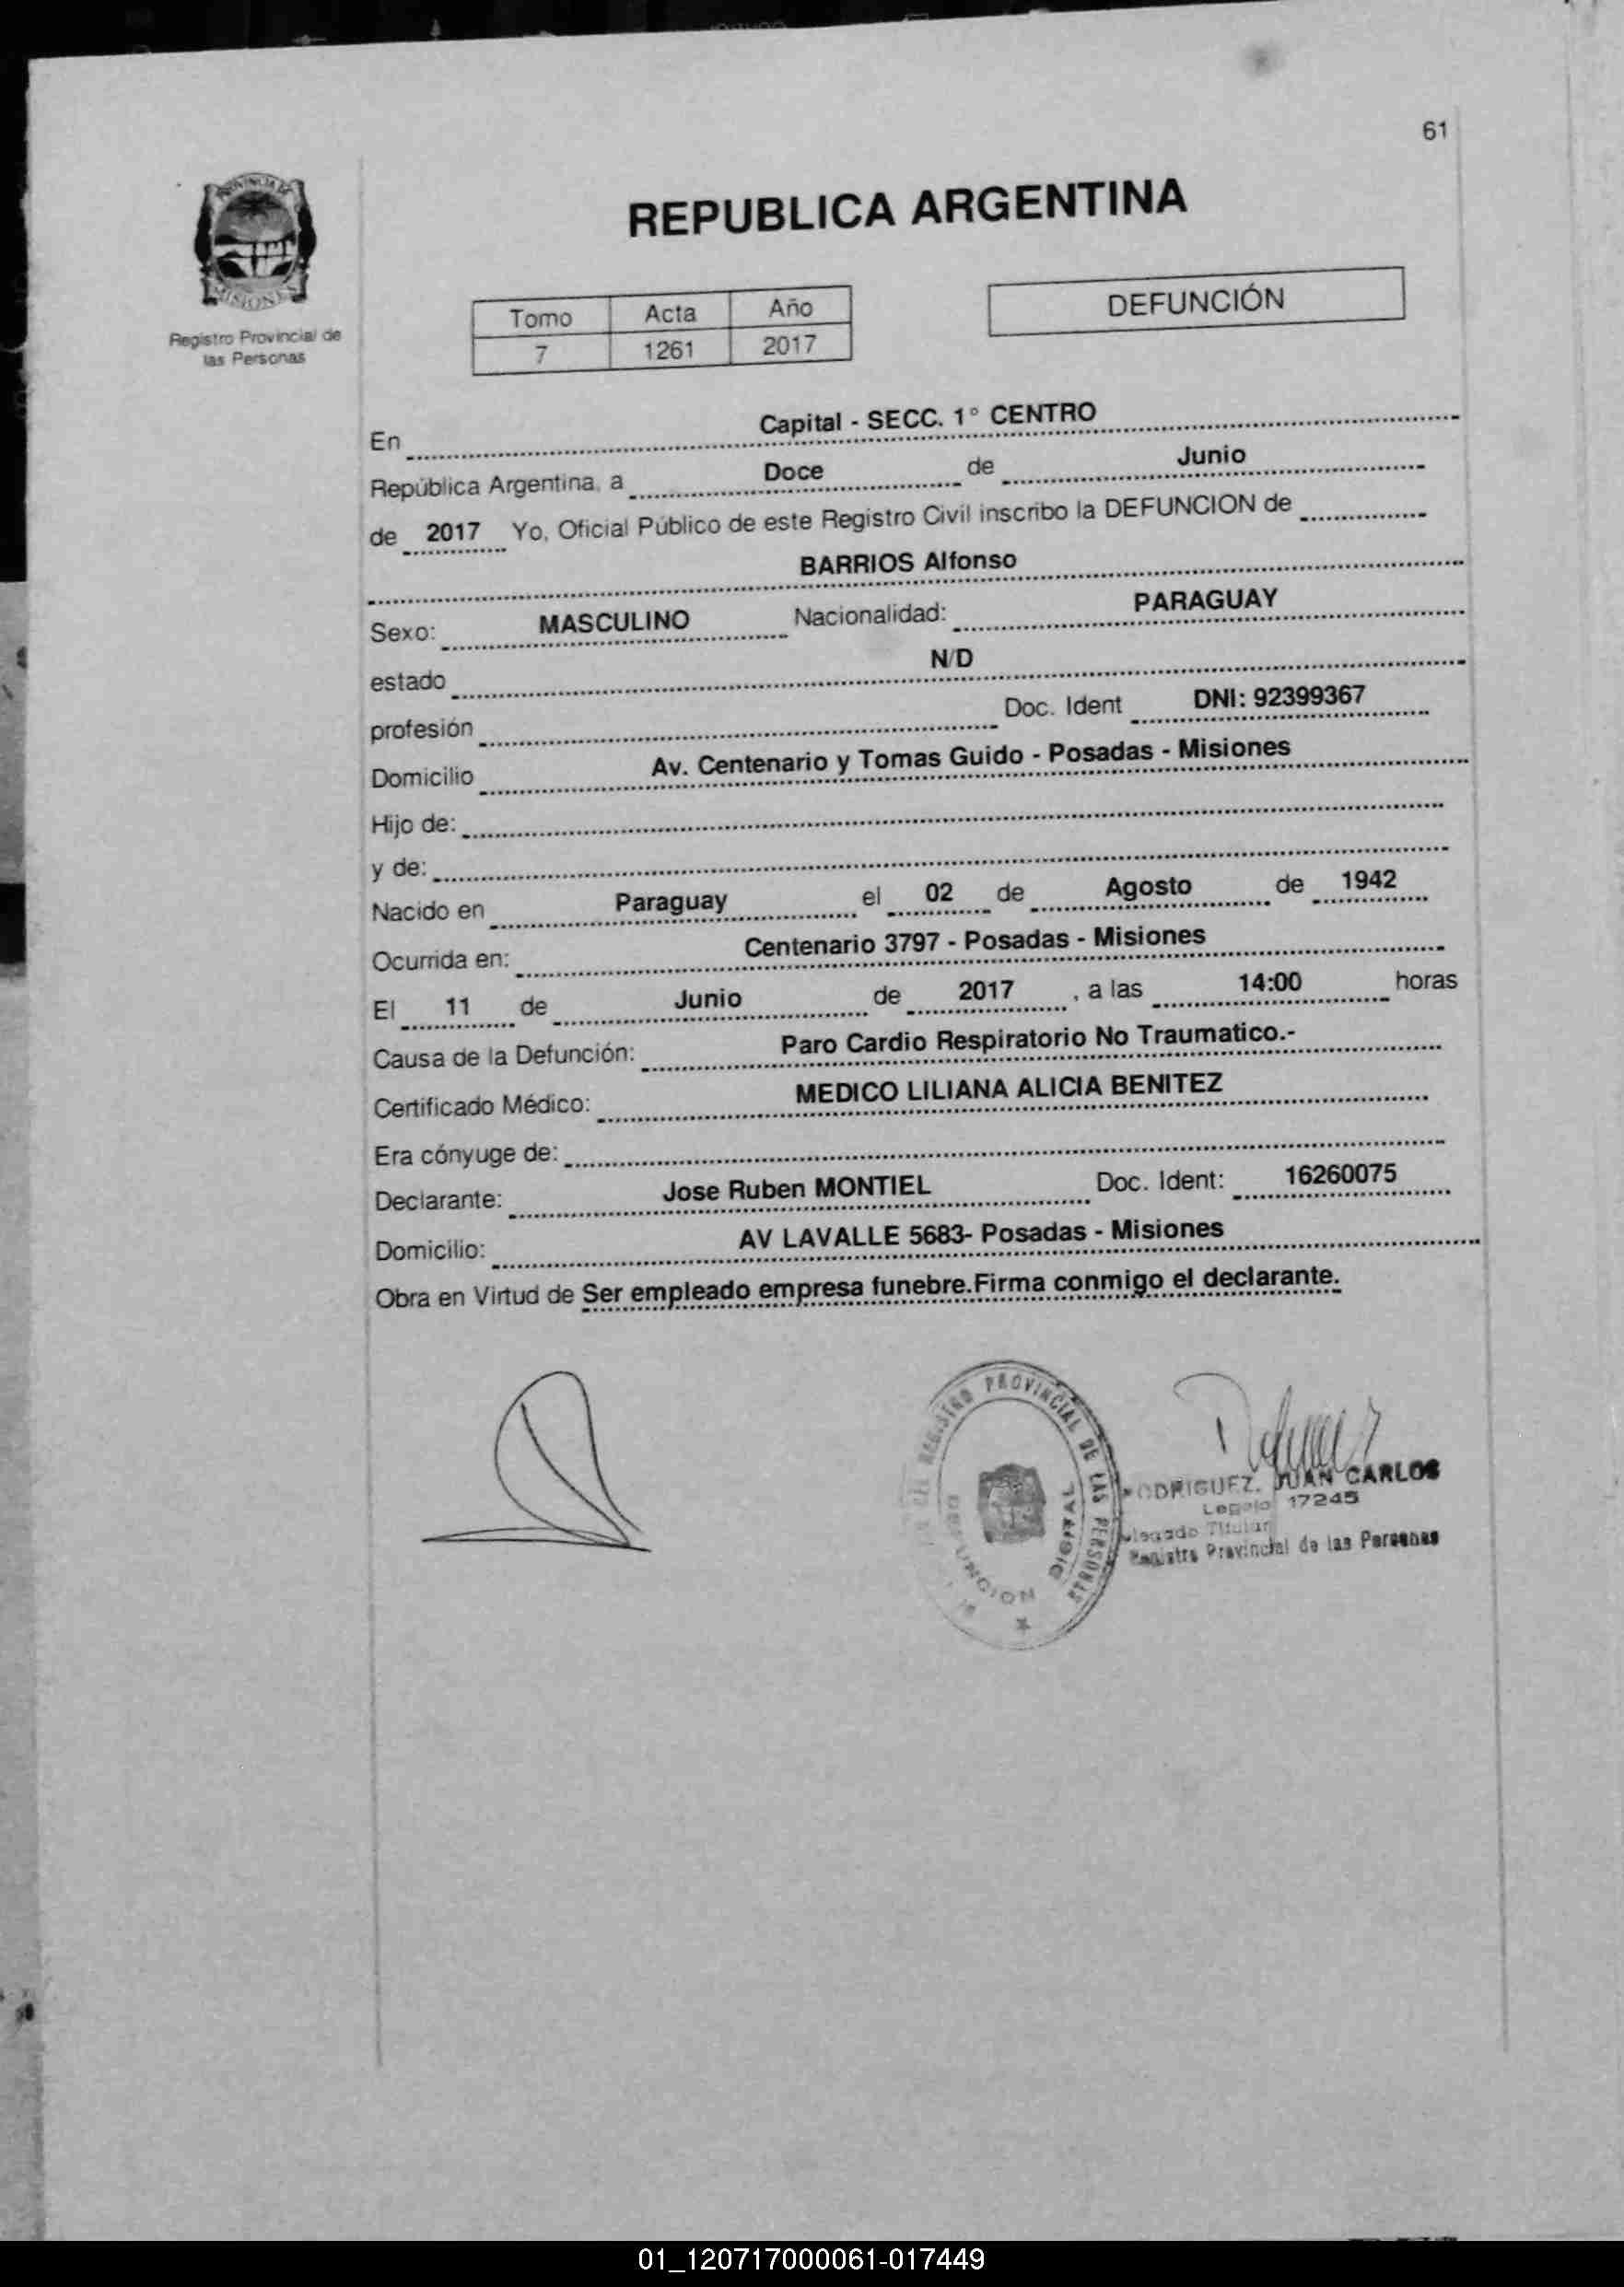 61
PROVINCIA DE
MISIONES
Registro Provincial de
las Personas
REPUBLICA ARGENTINA
Tomo Acta Año
7 1261 2017
DEFUNCIÓN
En Capital - SECC. 1° CENTRO
República Argentina, a Doce de Junio
de 2017 Yo, Oficial Público de este Registro Civil inscribo la DEFUNCION de
BARRIOS Alfonso
Sexo: MASCULINO Nacionalidad: PARAGUAY
estado N/D
profesión Doc. Ident DNI: 92399367
Domicilio Av. Centenario y Tomas Guido - Posadas - Misiones
Hijo de:
y de:
Nacido en Paraguay el 02 de Agosto de 1942
Ocurrida en: Centenario 3797 - Posadas - Misiones
El 11 de Junio de 2017, a las 14:00 horas
Causa de la Defunción: Paro Cardio Respiratorio No Traumatico.-
Certificado Médico: MEDICO LILIANA ALICIA BENITEZ
Era cónyuge de:
Declarante: Jose Ruben MONTIEL Doc. Ident: 16260075
Domicilio: AV LAVALLE 5683- Posadas - Misiones
Obra en Virtud de Ser empleado empresa funebre.Firma conmigo el declarante.
REGISTRO PROVINCIAL DE LAS PERSONAS
DIGITAL
RODRIGUEZ, JUAN CARLOS
Legajo 17245
Delegado Titular
Registro Provincial de las Personas
01_120717000061-017449